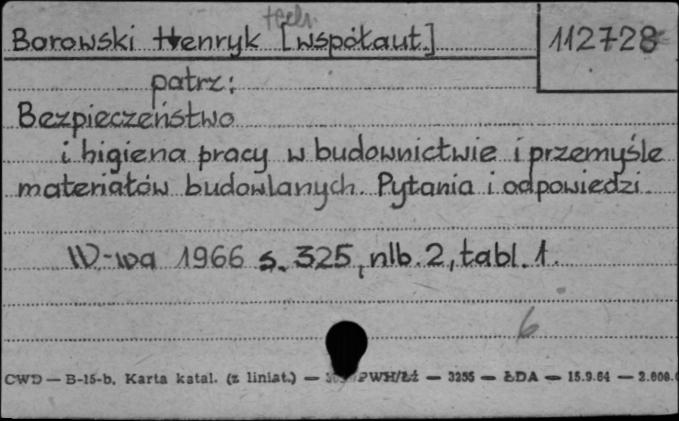 Borowski Henryk [współaut.] 112728
patrz:
Bezpieczeństwo
i higiena pracy w budownictwie i przemyśle
materiałów budowlanych. Pytania i odpowiedzi.
W-wa 1966 s. 325, nlb. 2, tabl. 1.
6
CWD — B-15-b, Karta katal. (z liniat.) — PWH/Łź — 3255 — ŁDA — 15.9.64 —